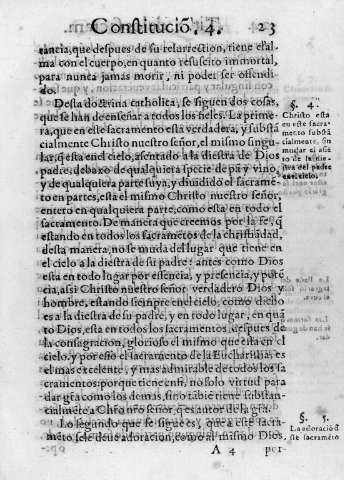 Constitució. 4. 23
tancia, que despues de su resurrection, tiene el al-
ma con el cuerpo, en quanto resuscito immortal,
para nunca jamas morir, ni poder ser offendi
do.
Desta doctrina catholica, se siguen dos cosas,
que se han de enseñar a todos los fieles. La prime-
ra, que en este sacramento está verdadera, y substá
cialmente Christo nuestro señor, el mismo singu-
lar, q̃ esta en el cielo, asentado a la diestra de Dios
padre, debaxo de qualquiera specie de pã y vino,
y de qualquiera parte suya, y diuidido el sacramé-
to en partes, está el mismo Christo nuestro señor,
entero en qualquiera parte, como esta en todo el
sacramento. De manera que creemos por la fe, q̃
estando en todos los sacramétos de la christiãdad,
desta manera, no se muda del lugar que tiene en
el cielo a la diestra de su padre: antes como Dios
esta en todo lugar por essencia, y presencia, y poté
cia, assi Christo nuestro señor verdadero Dios y
hombre, estando siempre en el cielo, como dicho
es a la diestra de su padre, y en todo lugar, en quá
to Dios, esta en todos los sacramentos, despues de
la consagracion, glorioso el mismo que esta en el
cielo. y por esto el sacramento de la Eucharistia: es
el mas excelente, y mas admirable de todos los sa
cramentos: porque tiene en si, no solo virtud para
dar grã como los demas, sino tábié tiene substan-
cialméte a Chrõ nrõ señor, q̃ es autor de la grã.
Lo segundo que se sigue es, que a este sacra-
méto, se le deue adoracion, como al mismo Dios
A 4 por
§. 4.
Christo esta
en este sacra-
mento substá
cialmente, sin
mudar el assié
to de la dies
tra del padre
en el cielo.
§. 5.
La adoració d̃
este sacraméto